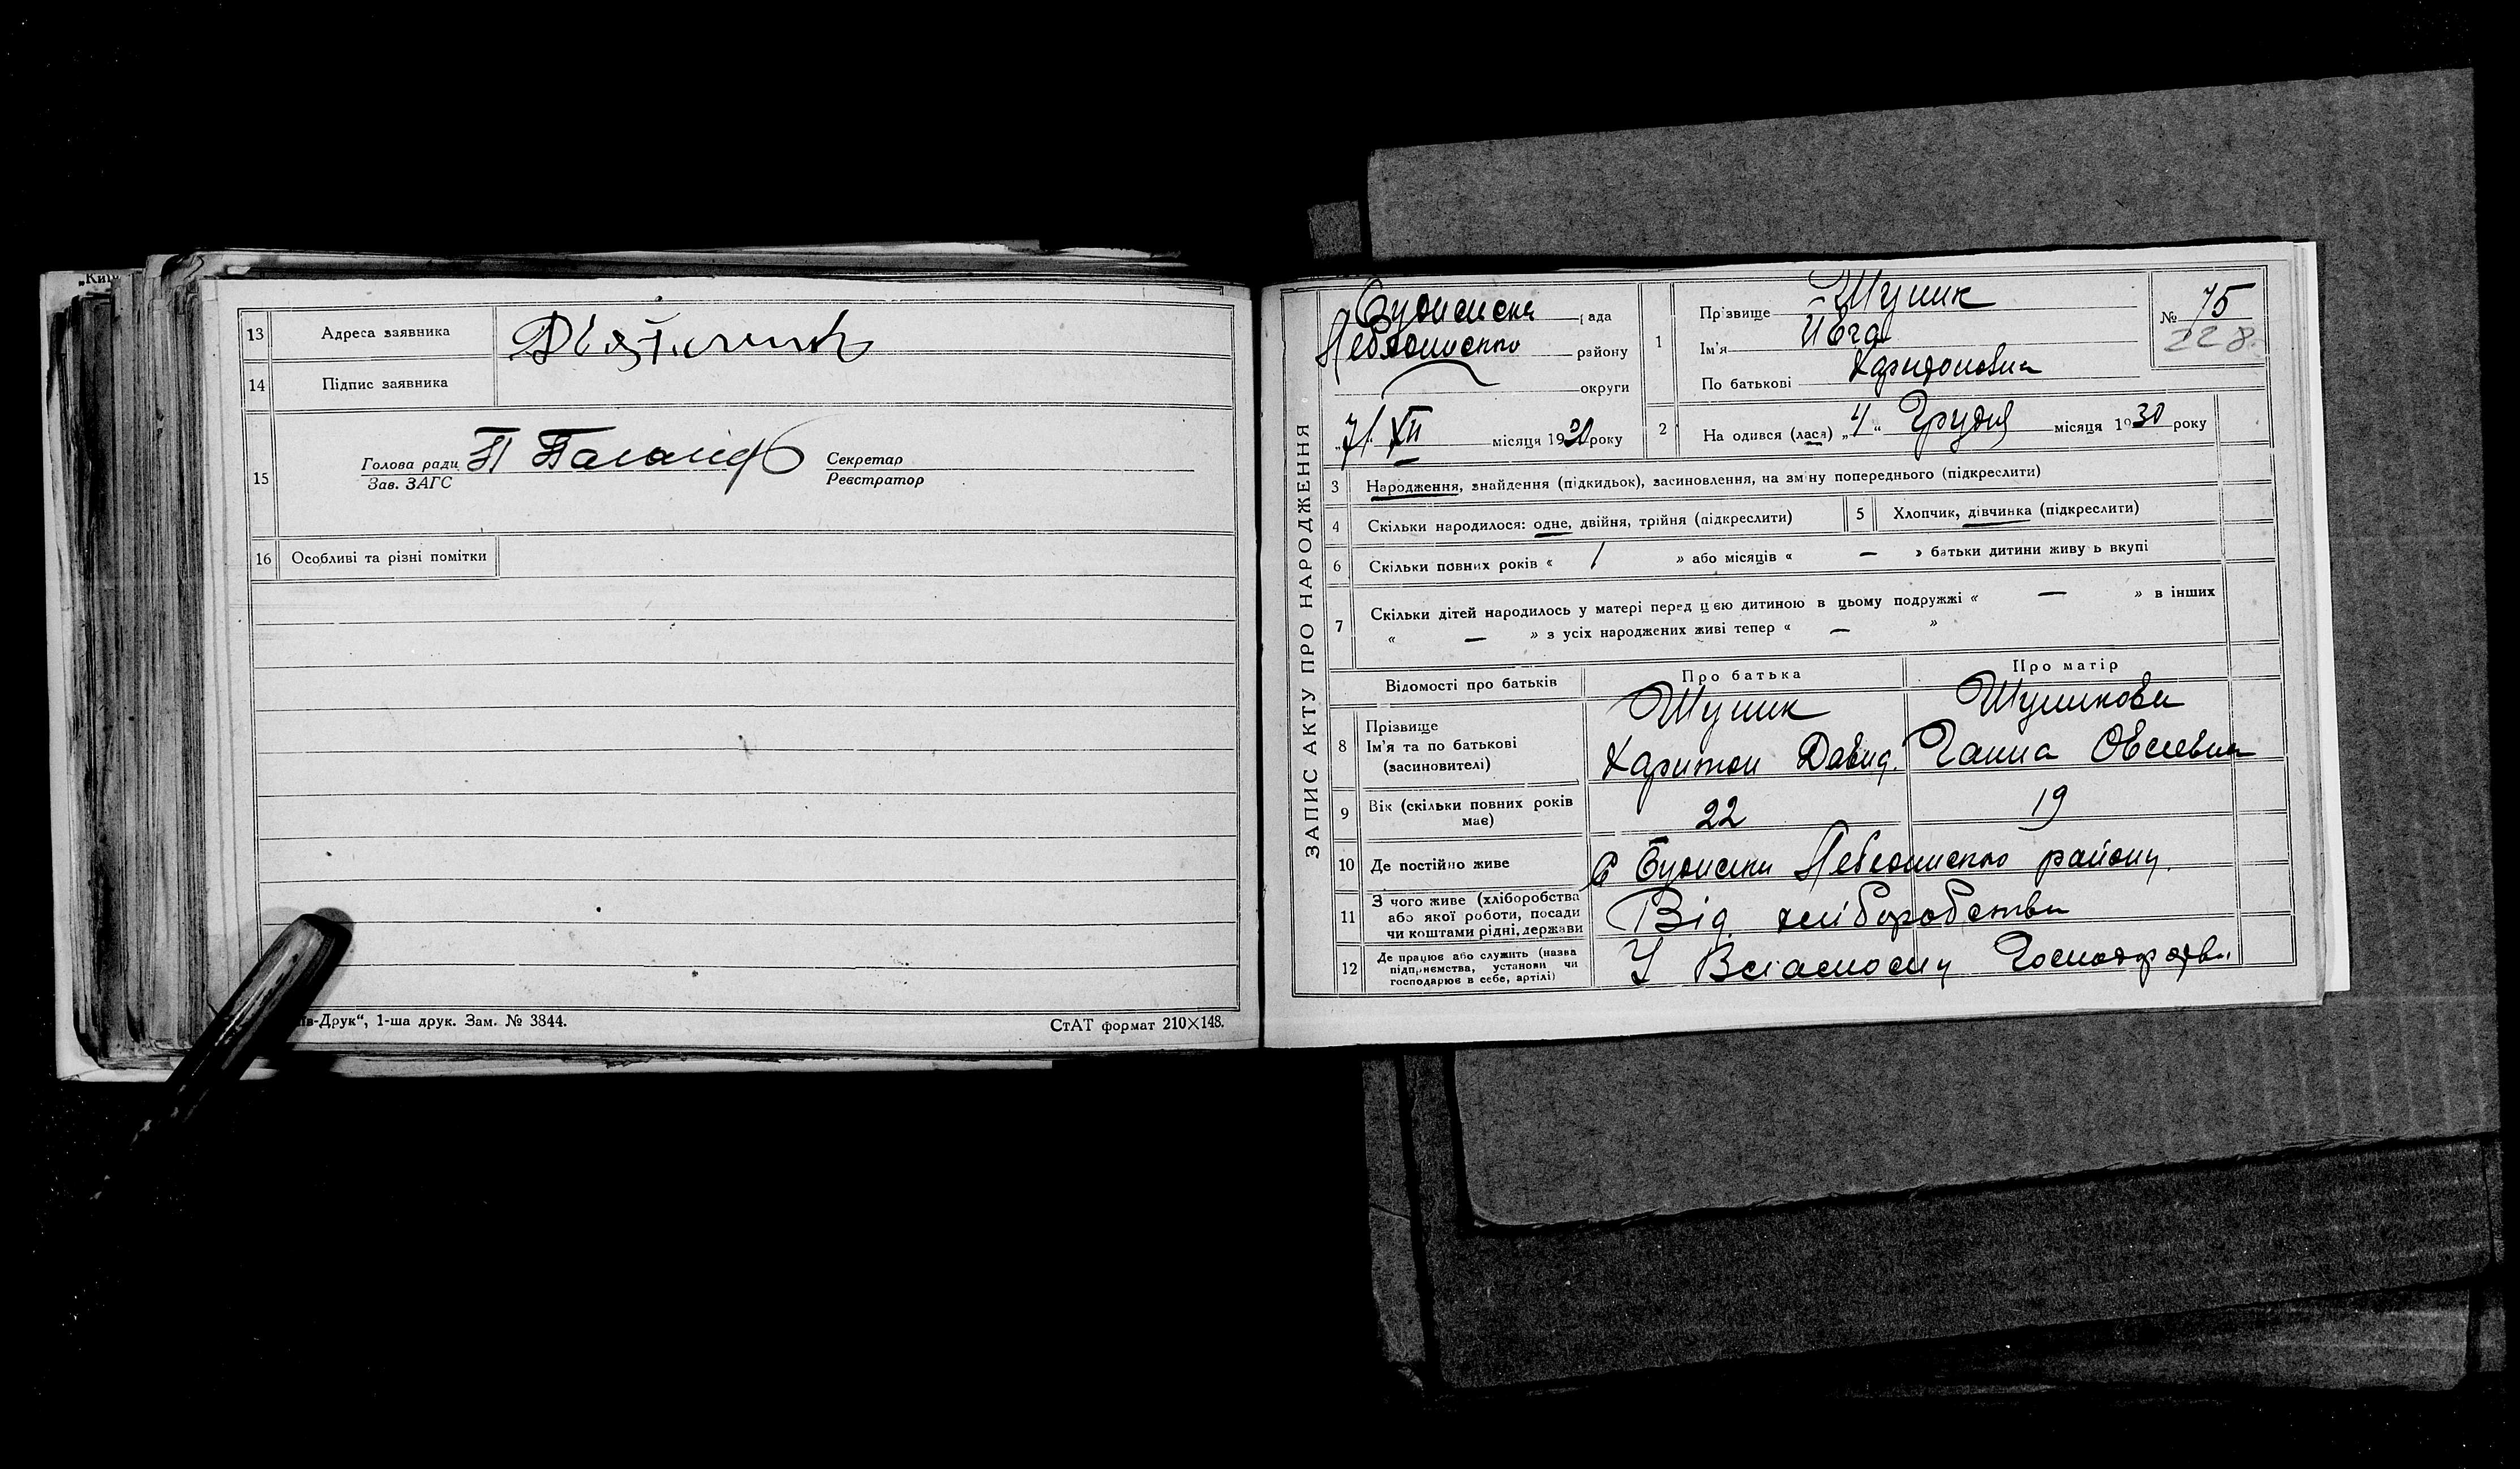 „Київ
13 Адреса заявника
14 Підпис заявника
15 Голова ради Секретар
Зав. ЗАГС Реєстратор
16 Особливі та різні помітки
їв-Друк“, 1-ша друк. Зам. № 3844. СтАТ формат 210×148.
ЗАПИС АКТУ ПРО НАРОДЖЕННЯ
рада
району
округи
XII місяця 1930 року
1 Прізвище Шулик
Ім'я Ивга
По батькові Харитоновна
№ 75
228.
2 На одився (лася) „4“ Грудня місяця 1930 року
3 Народження, знайдення (підкидьок), засиновлення, на зміну попереднього (підкреслити)
4 Скільки народилося: одне, двійня, трійня (підкреслити)
5 Хлопчик, дівчинка (підкреслити)
6 Скільки повних років « 1 » або місяців « — » батьки дитини живу ь вкупі
7 Скільки дітей народилось у матері перед цією дитиною в цьому подружжі « — » в інших
« — » з усіх народжених живі тепер « — »
Відомості про батьків Про батька Про матір
8 Прізвище Шулик Шуликова
Ім'я та по батькові Харитон Давид. Ганна Овсеевна
(засиновителі)
9 Вік (скільки повних років 22 19
має)
10 Де постійно живе району
11 З чого живе (хліборобства Від хліборобства
або якої роботи, посади
чи коштами рідні, держави
12 Де працює або служить (назва У Власному Господарстві
підприємства, установи чи
господарює в себе, артілі)